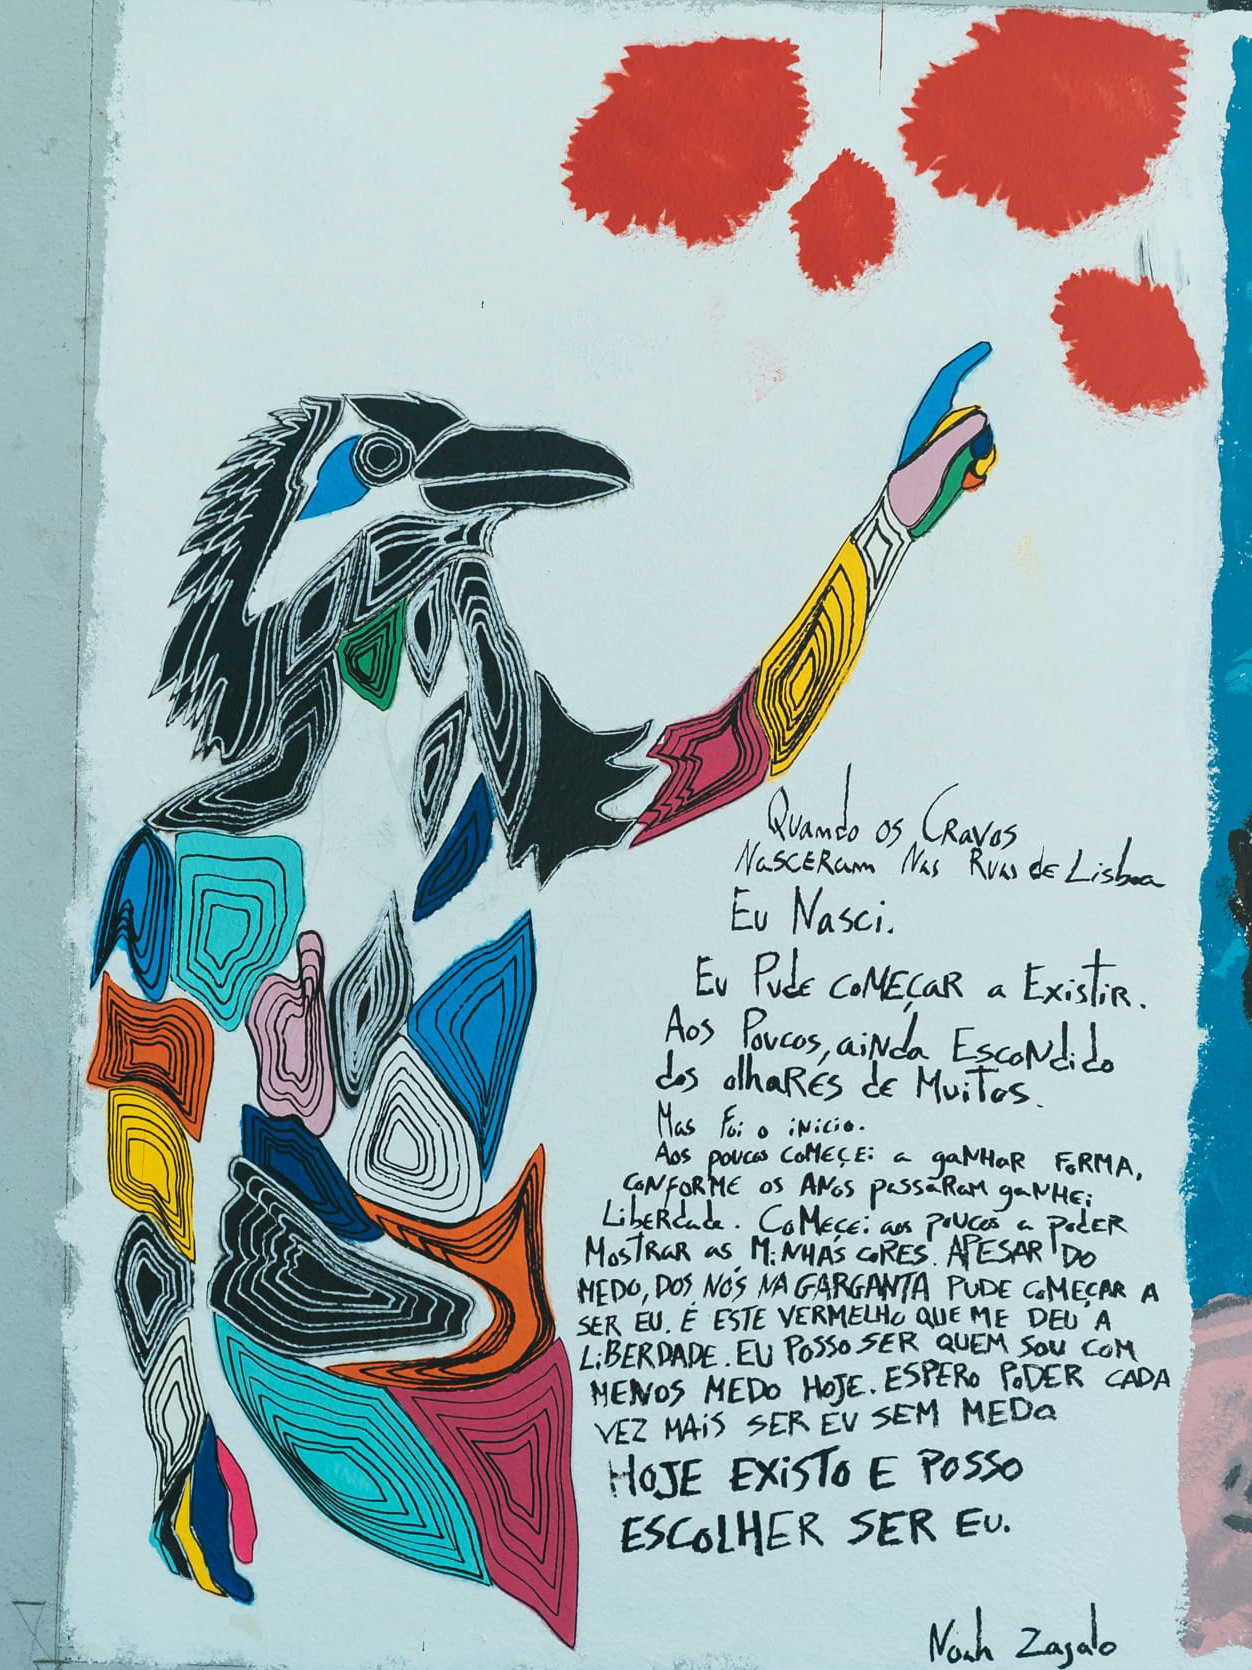 Quando os Cravos
Nasceram Nas Ruas de Lisboa
Eu Nasci.
Eu Pude COMEÇAR a Existir.
Aos Poucos, aiNda EsCoNdido
dos olhaREs de Muitos.
Mas Foi o inicio.
Aos poucos COMEÇEi a gaNHAR FORMA,
CONFORME os ANos passaRam gaNHEi
LibERdade. CoMEÇEi aos poucos a podER
MOSTRAR as MiNHAS CORES. APESAR DO
MEDO, DOS NÓS NA GARGANTA PUDE COMEÇAR A
SER EU. É ESTE VERMELHO QUE ME DEU A
LiBERDADE. EU POSSO SER QUEM SOU COM
MENOS MEDO HOJE. ESPERO PODER CADA
VEZ MAiS SER EU SEM MEDO
HOJE EXiSTO E POSSO
ESCOLHER SER EU.
Noah Zagalo